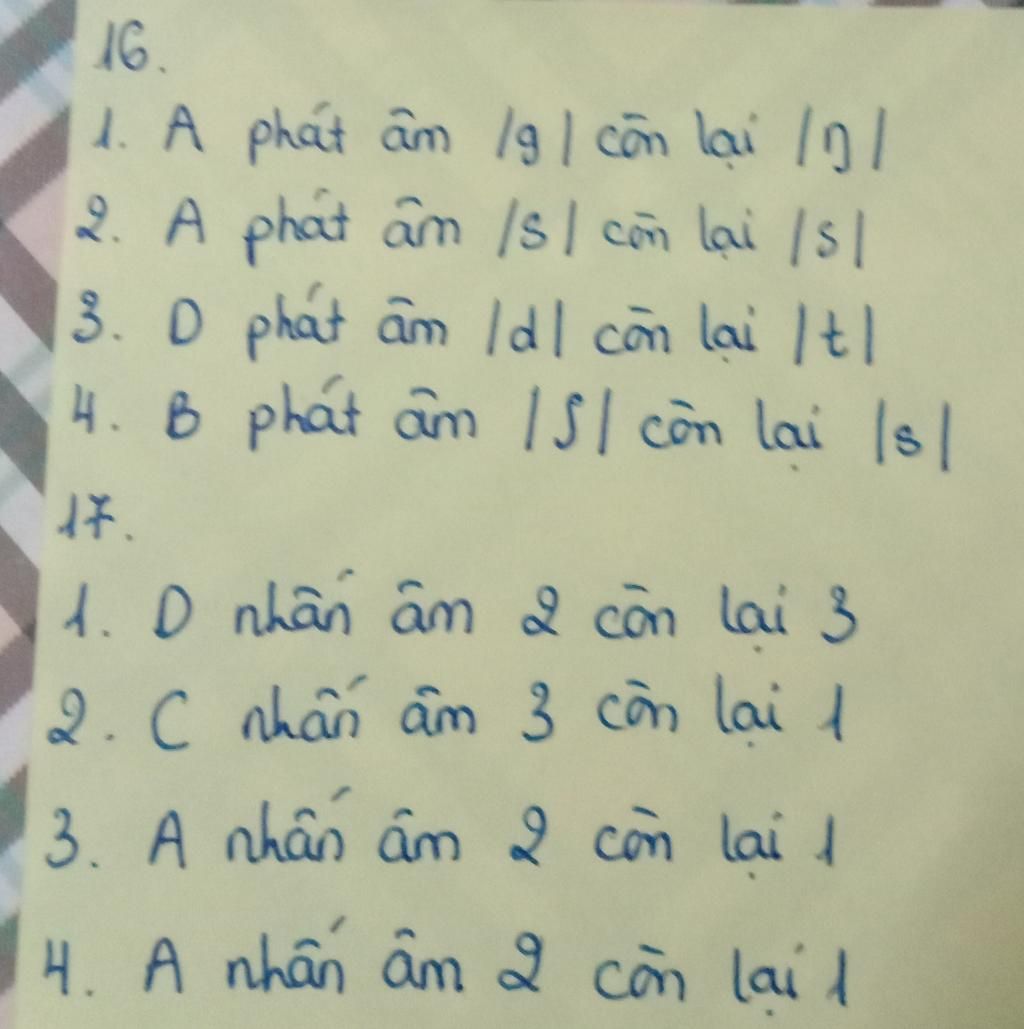 16.
1. A phát âm /g/ còn lại /ŋ/
2. A phát âm /s/ còn lại /s/
3. D phát âm /d/ còn lại /t/
4. B phát âm /ʃ/ còn lại /s/
17.
1. D nhấn âm 2 còn lại 3
2. C nhấn âm 3 còn lại 1
3. A nhấn âm 2 còn lại 1
4. A nhấn âm 2 còn lại 1